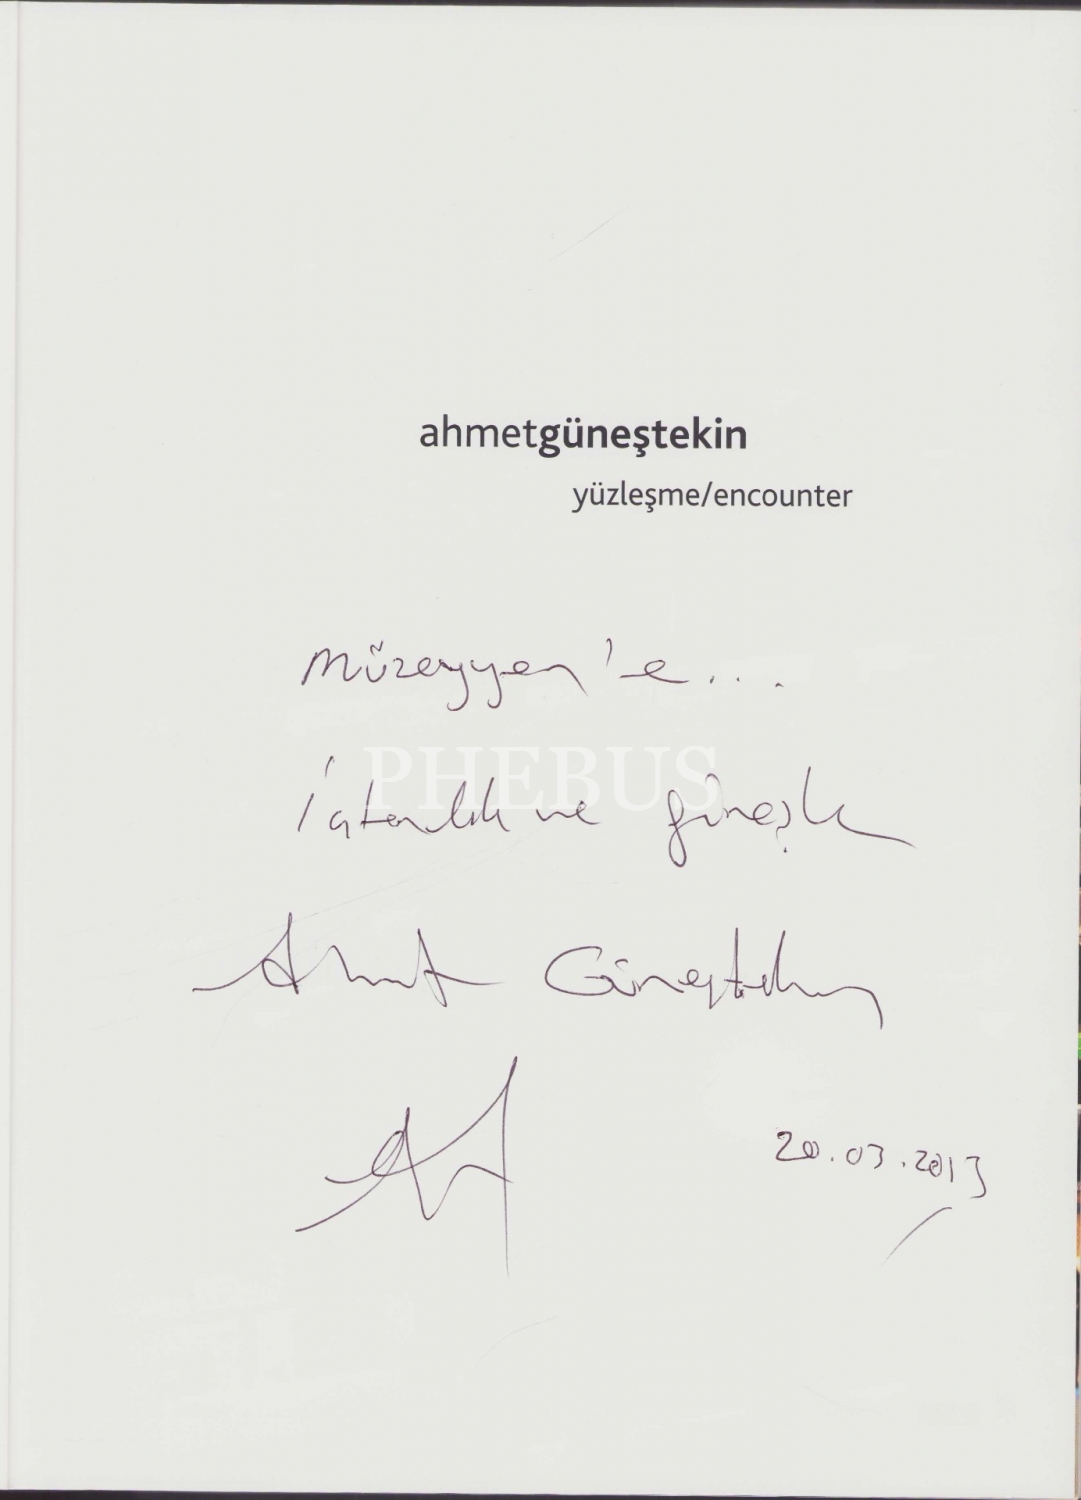 ahmetgüneştekin
yüzleşme/encounter
Müzeyyen'e...
PHEBUS
İçtenlik ve güneşle
Ahmet Güneştekin
20.03.2013